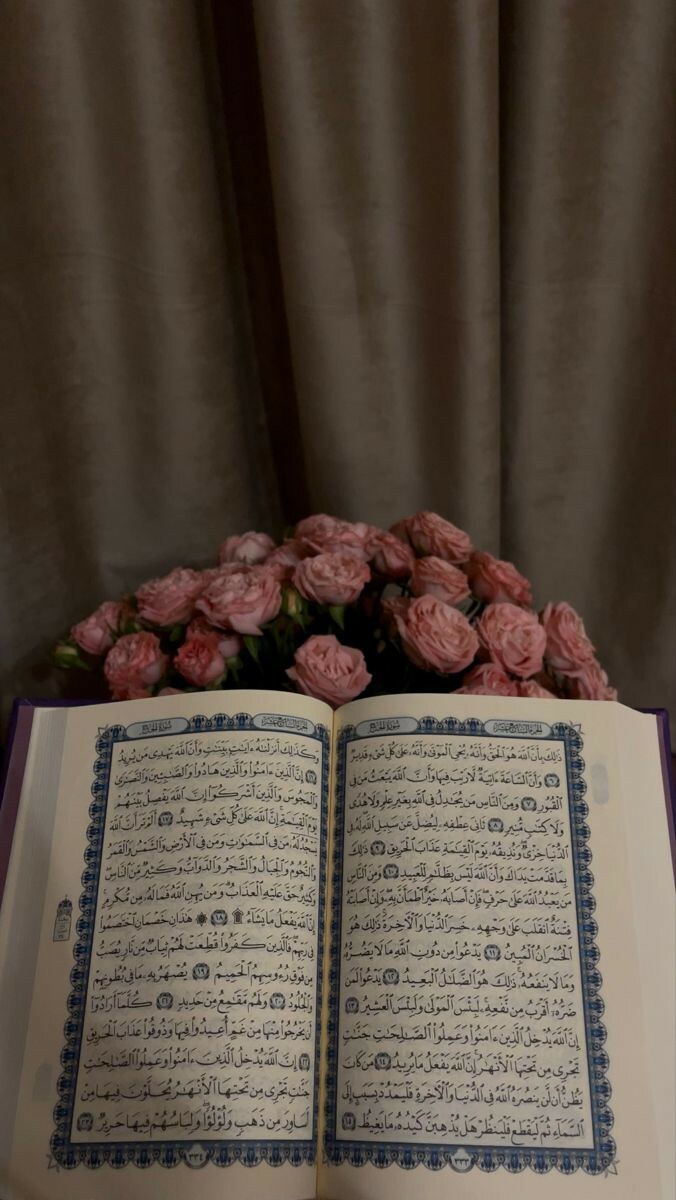 سُورَةُ الحَجِّ الجُزْءُ السَّابِعَ عَشَرَ
ذَٰلِكَ بِأَنَّ ٱللَّهَ هُوَ ٱلْحَقُّ وَأَنَّهُۥ يُحْىِ ٱلْمَوْتَىٰ وَأَنَّهُۥ عَلَىٰ كُلِّ شَىْءٍ قَدِيرٌ
٦ وَأَنَّ ٱلسَّاعَةَ ءَاتِيَةٌ لَّا رَيْبَ فِيهَا وَأَنَّ ٱللَّهَ يَبْعَثُ مَن فِى
ٱلْقُبُورِ ٧ وَمِنَ ٱلنَّاسِ مَن يُجَٰدِلُ فِى ٱللَّهِ بِغَيْرِ عِلْمٍ وَلَا هُدًى
وَلَا كِتَٰبٍ مُّنِيرٍ ٨ ثَانِىَ عِطْفِهِۦ لِيُضِلَّ عَن سَبِيلِ ٱللَّهِ لَهُۥ فِى
ٱلدُّنْيَا خِزْىٌ وَنُذِيقُهُۥ يَوْمَ ٱلْقِيَٰمَةِ عَذَابَ ٱلْحَرِيقِ ٩ ذَٰلِكَ
بِمَا قَدَّمَتْ يَدَاكَ وَأَنَّ ٱللَّهَ لَيْسَ بِظَلَّٰمٍ لِّلْعَبِيدِ ١٠ وَمِنَ ٱلنَّاسِ
مَن يَعْبُدُ ٱللَّهَ عَلَىٰ حَرْفٍ فَإِنْ أَصَابَهُۥ خَيْرٌ ٱطْمَأَنَّ بِهِۦ وَإِنْ أَصَابَتْهُ
فِتْنَةٌ ٱنقَلَبَ عَلَىٰ وَجْهِهِۦ خَسِرَ ٱلدُّنْيَا وَٱلْءَاخِرَةَ ذَٰلِكَ هُوَ
ٱلْخُسْرَانُ ٱلْمُبِينُ ١١ يَدْعُوا۟ مِن دُونِ ٱللَّهِ مَا لَا يَضُرُّهُۥ
وَمَا لَا يَنفَعُهُۥ ذَٰلِكَ هُوَ ٱلضَّلَٰلُ ٱلْبَعِيدُ ١٢ يَدْعُوا۟ لَمَن
ضَرُّهُۥٓ أَقْرَبُ مِن نَّفْعِهِۦ لَبِئْسَ ٱلْمَوْلَىٰ وَلَبِئْسَ ٱلْعَشِيرُ ١٣
إِنَّ ٱللَّهَ يُدْخِلُ ٱلَّذِينَ ءَامَنُوا۟ وَعَمِلُوا۟ ٱلصَّٰلِحَٰتِ جَنَّٰتٍ
تَجْرِى مِن تَحْتِهَا ٱلْأَنْهَٰرُ إِنَّ ٱللَّهَ يَفْعَلُ مَا يُرِيدُ ١٤ مَن كَانَ
يَظُنُّ أَن لَّن يَنصُرَهُ ٱللَّهُ فِى ٱلدُّنْيَا وَٱلْءَاخِرَةِ فَلْيَمْدُدْ بِسَبَبٍ إِلَى
ٱلسَّمَآءِ ثُمَّ لْيَقْطَعْ فَلْيَنظُرْ هَلْ يُذْهِبَنَّ كَيْدُهُۥ مَا يَغِيظُ ١٥
٣٣٣
سُورَةُ الحَجِّ الجُزْءُ السَّابِعَ عَشَرَ
وَكَذَٰلِكَ أَنزَلْنَٰهُ ءَايَٰتٍۭ بَيِّنَٰتٍ وَأَنَّ ٱللَّهَ يَهْدِى مَن يُرِيدُ
١٦ إِنَّ ٱلَّذِينَ ءَامَنُوا۟ وَٱلَّذِينَ هَادُوا۟ وَٱلصَّٰبِـِٔينَ وَٱلنَّصَٰرَىٰ
وَٱلْمَجُوسَ وَٱلَّذِينَ أَشْرَكُوٓا۟ إِنَّ ٱللَّهَ يَفْصِلُ بَيْنَهُمْ
يَوْمَ ٱلْقِيَٰمَةِ إِنَّ ٱللَّهَ عَلَىٰ كُلِّ شَىْءٍ شَهِيدٌ ١٧ أَلَمْ تَرَ أَنَّ ٱللَّهَ
يَسْجُدُ لَهُۥ مَن فِى ٱلسَّمَٰوَٰتِ وَمَن فِى ٱلْأَرْضِ وَٱلشَّمْسُ وَٱلْقَمَرُ
وَٱلنُّجُومُ وَٱلْجِبَالُ وَٱلشَّجَرُ وَٱلدَّوَآبُّ وَكَثِيرٌ مِّنَ ٱلنَّاسِ
وَكَثِيرٌ حَقَّ عَلَيْهِ ٱلْعَذَابُ وَمَن يُهِنِ ٱللَّهُ فَمَا لَهُۥ مِن مُّكْرِمٍ
إِنَّ ٱللَّهَ يَفْعَلُ مَا يَشَآءُ ۩ ١٨ ۞ هَٰذَانِ خَصْمَانِ ٱخْتَصَمُوا۟
فِى رَبِّهِمْ فَٱلَّذِينَ كَفَرُوا۟ قُطِّعَتْ لَهُمْ ثِيَابٌ مِّن نَّارٍ يُصَبُّ
مِن فَوْقِ رُءُوسِهِمُ ٱلْحَمِيمُ ١٩ يُصْهَرُ بِهِۦ مَا فِى بُطُونِهِمْ
وَٱلْجُلُودُ ٢٠ وَلَهُم مَّقَٰمِعُ مِنْ حَدِيدٍ ٢١ كُلَّمَآ أَرَادُوٓا۟
أَن يَخْرُجُوا۟ مِنْهَا مِنْ غَمٍّ أُعِيدُوا۟ فِيهَا وَذُوقُوا۟ عَذَابَ ٱلْحَرِيقِ
٢٢ إِنَّ ٱللَّهَ يُدْخِلُ ٱلَّذِينَ ءَامَنُوا۟ وَعَمِلُوا۟ ٱلصَّٰلِحَٰتِ
جَنَّٰتٍ تَجْرِى مِن تَحْتِهَا ٱلْأَنْهَٰرُ يُحَلَّوْنَ فِيهَا مِنْ
أَسَاوِرَ مِن ذَهَبٍ وَلُؤْلُؤًا وَلِبَاسُهُمْ فِيهَا حَرِيرٌ ٢٣
٣٣٤